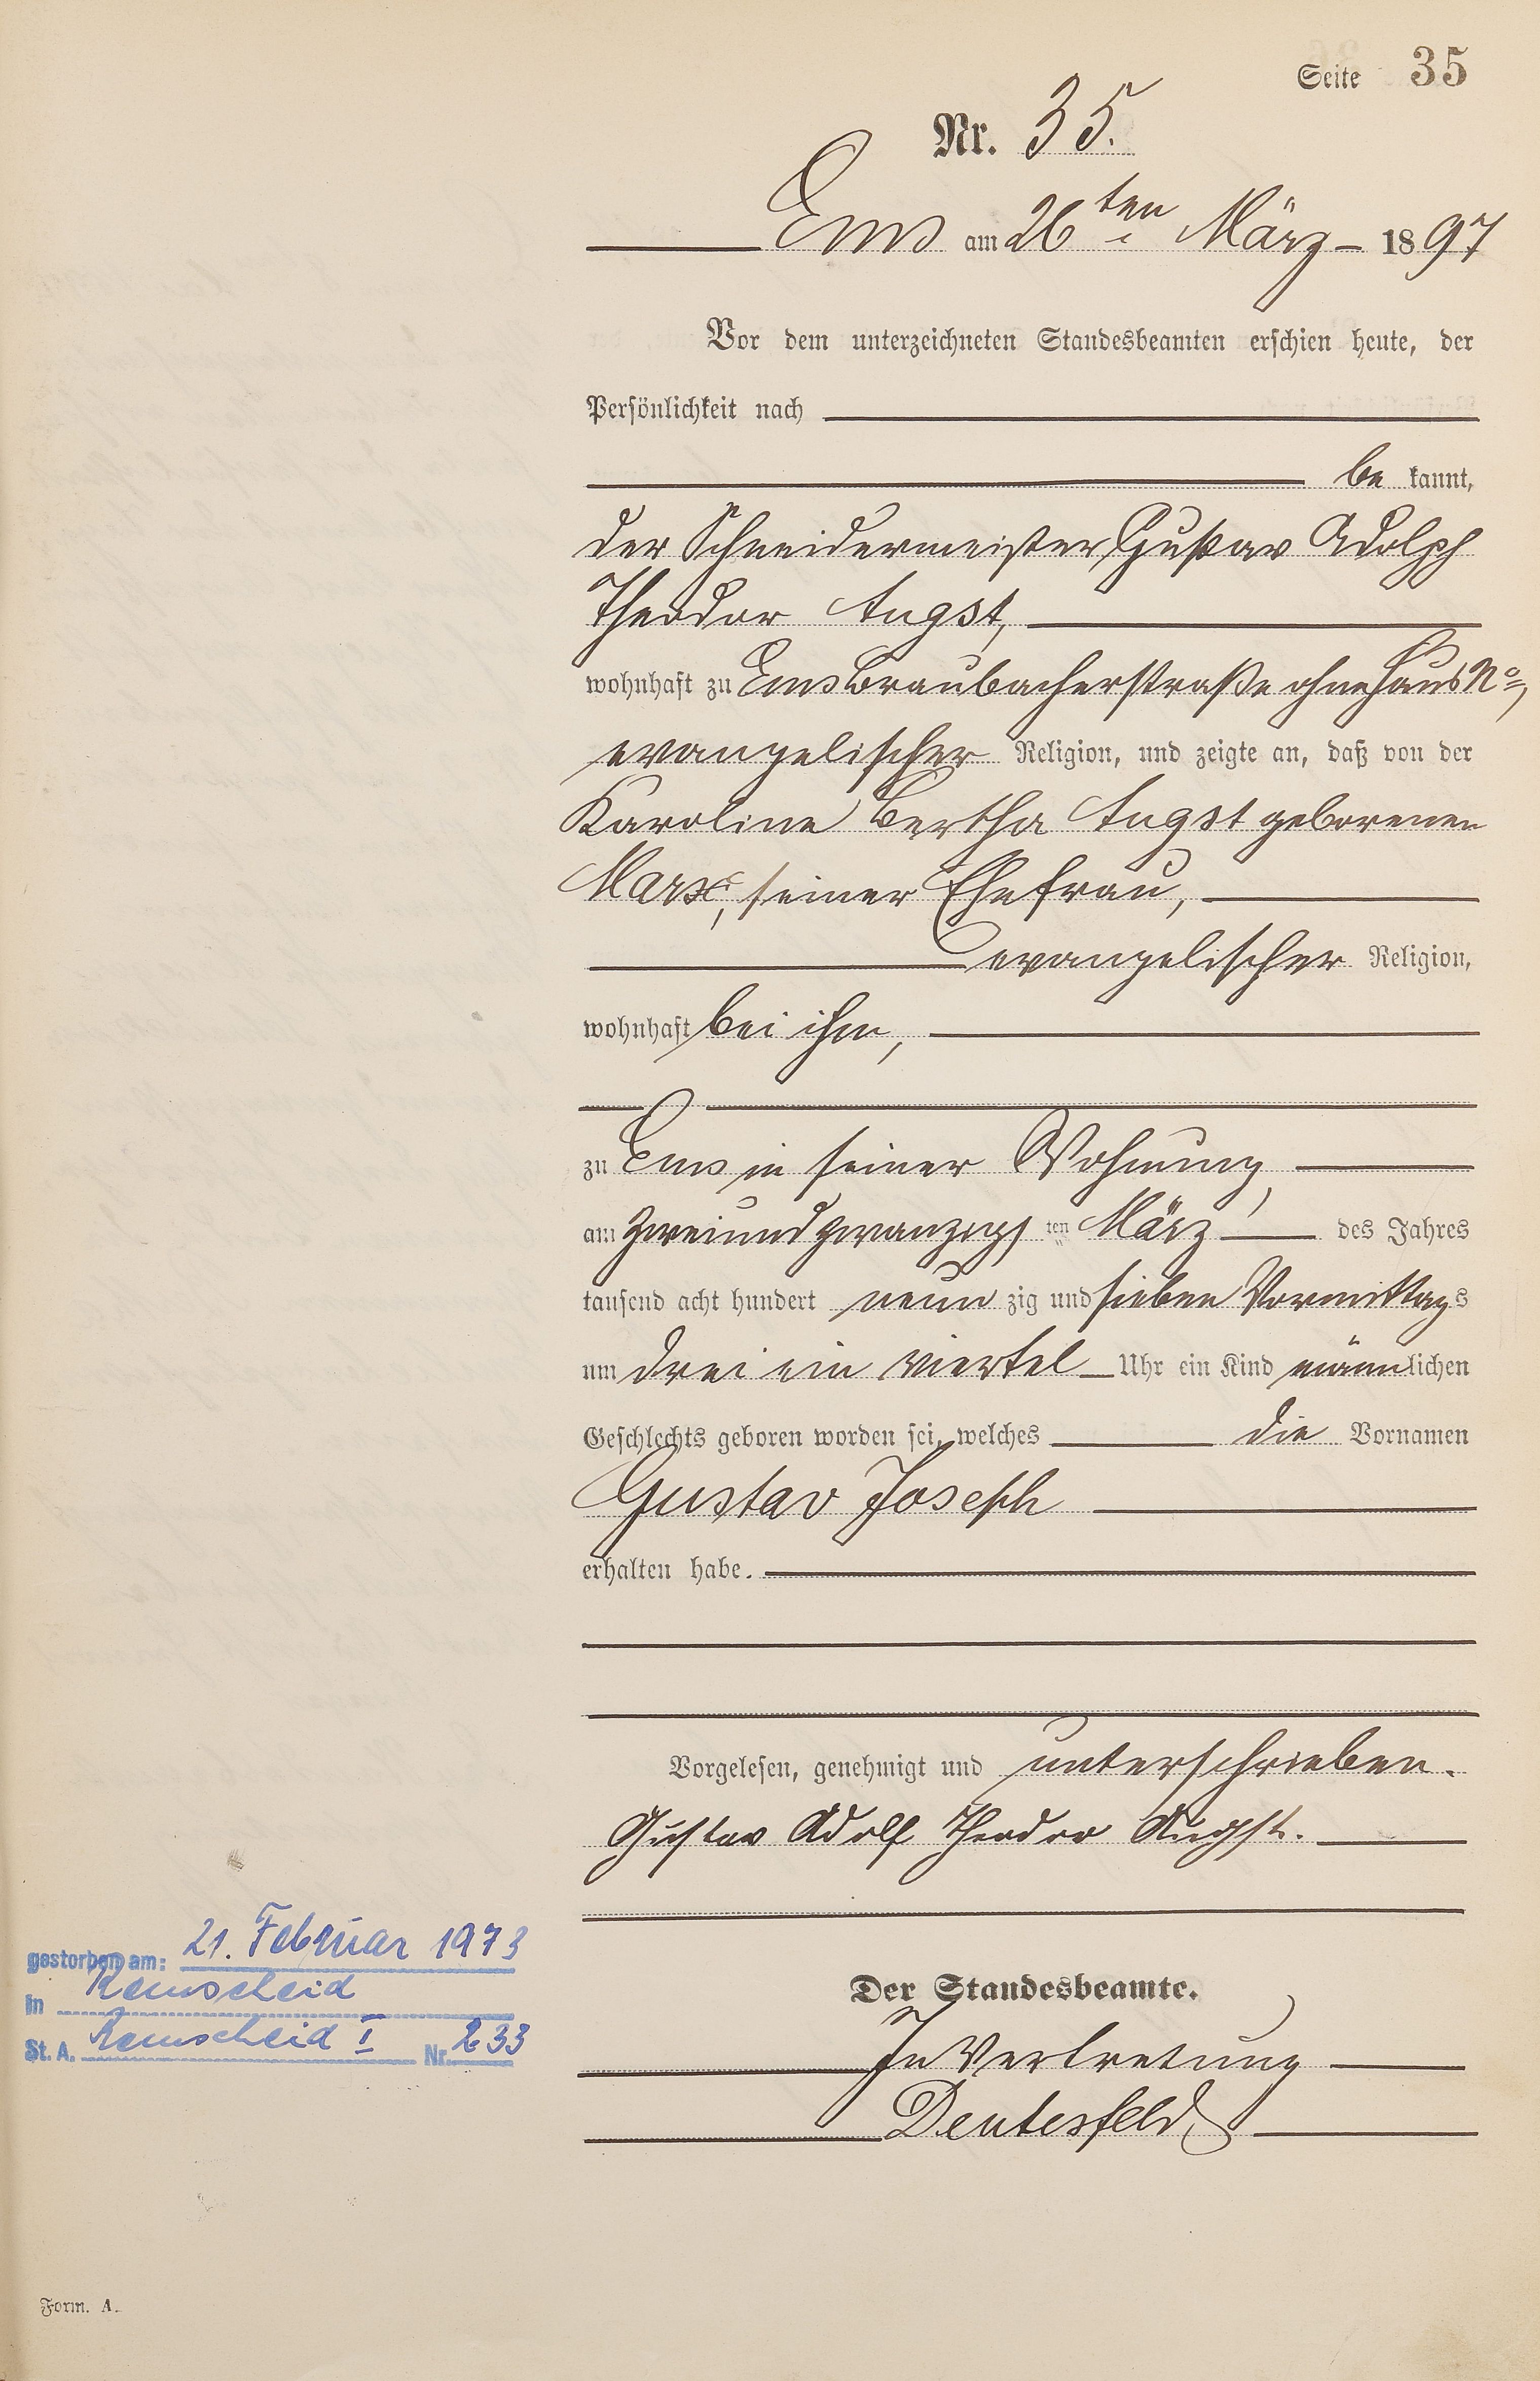 Seite 35
Nr. 35.
Ems am 26ten März 1897
Vor dem unterzeichneten Standesbeamten erschien heute, der
Persönlichkeit nach
be kannt,
der Schneidermeister Gustav Adolph
Theodor Angst,
wohnhaft zu Ems Braubacherstraße ohne Haus No,
evangelischer Religion, und zeigte an, daß von der
Karoline Bertha Angst geborenen
Marx, seiner Ehefrau,
evangelischer Religion,
wohnhaft bei ihm,
zu Ems in seiner Wohnung,
am zweiundzwanzigs ten März des Jahres
tausend acht hundert neun zig und sieben Vormittags
um drei ein viertel Uhr ein Kind männlichen
Geschlechts geboren worden sei, welches die Vornamen
Gustav Joseph
erhalten habe.
Vorgelesen, genehmigt und unterschrieben.
Gustav Adolf Theodor Angst.
gestorben am: 21. Februar 1973
in Remscheid
St. A. Remscheid I Nr. 233
Der Standesbeamte.
In Vertretung
Deutesfeld
Form. A.